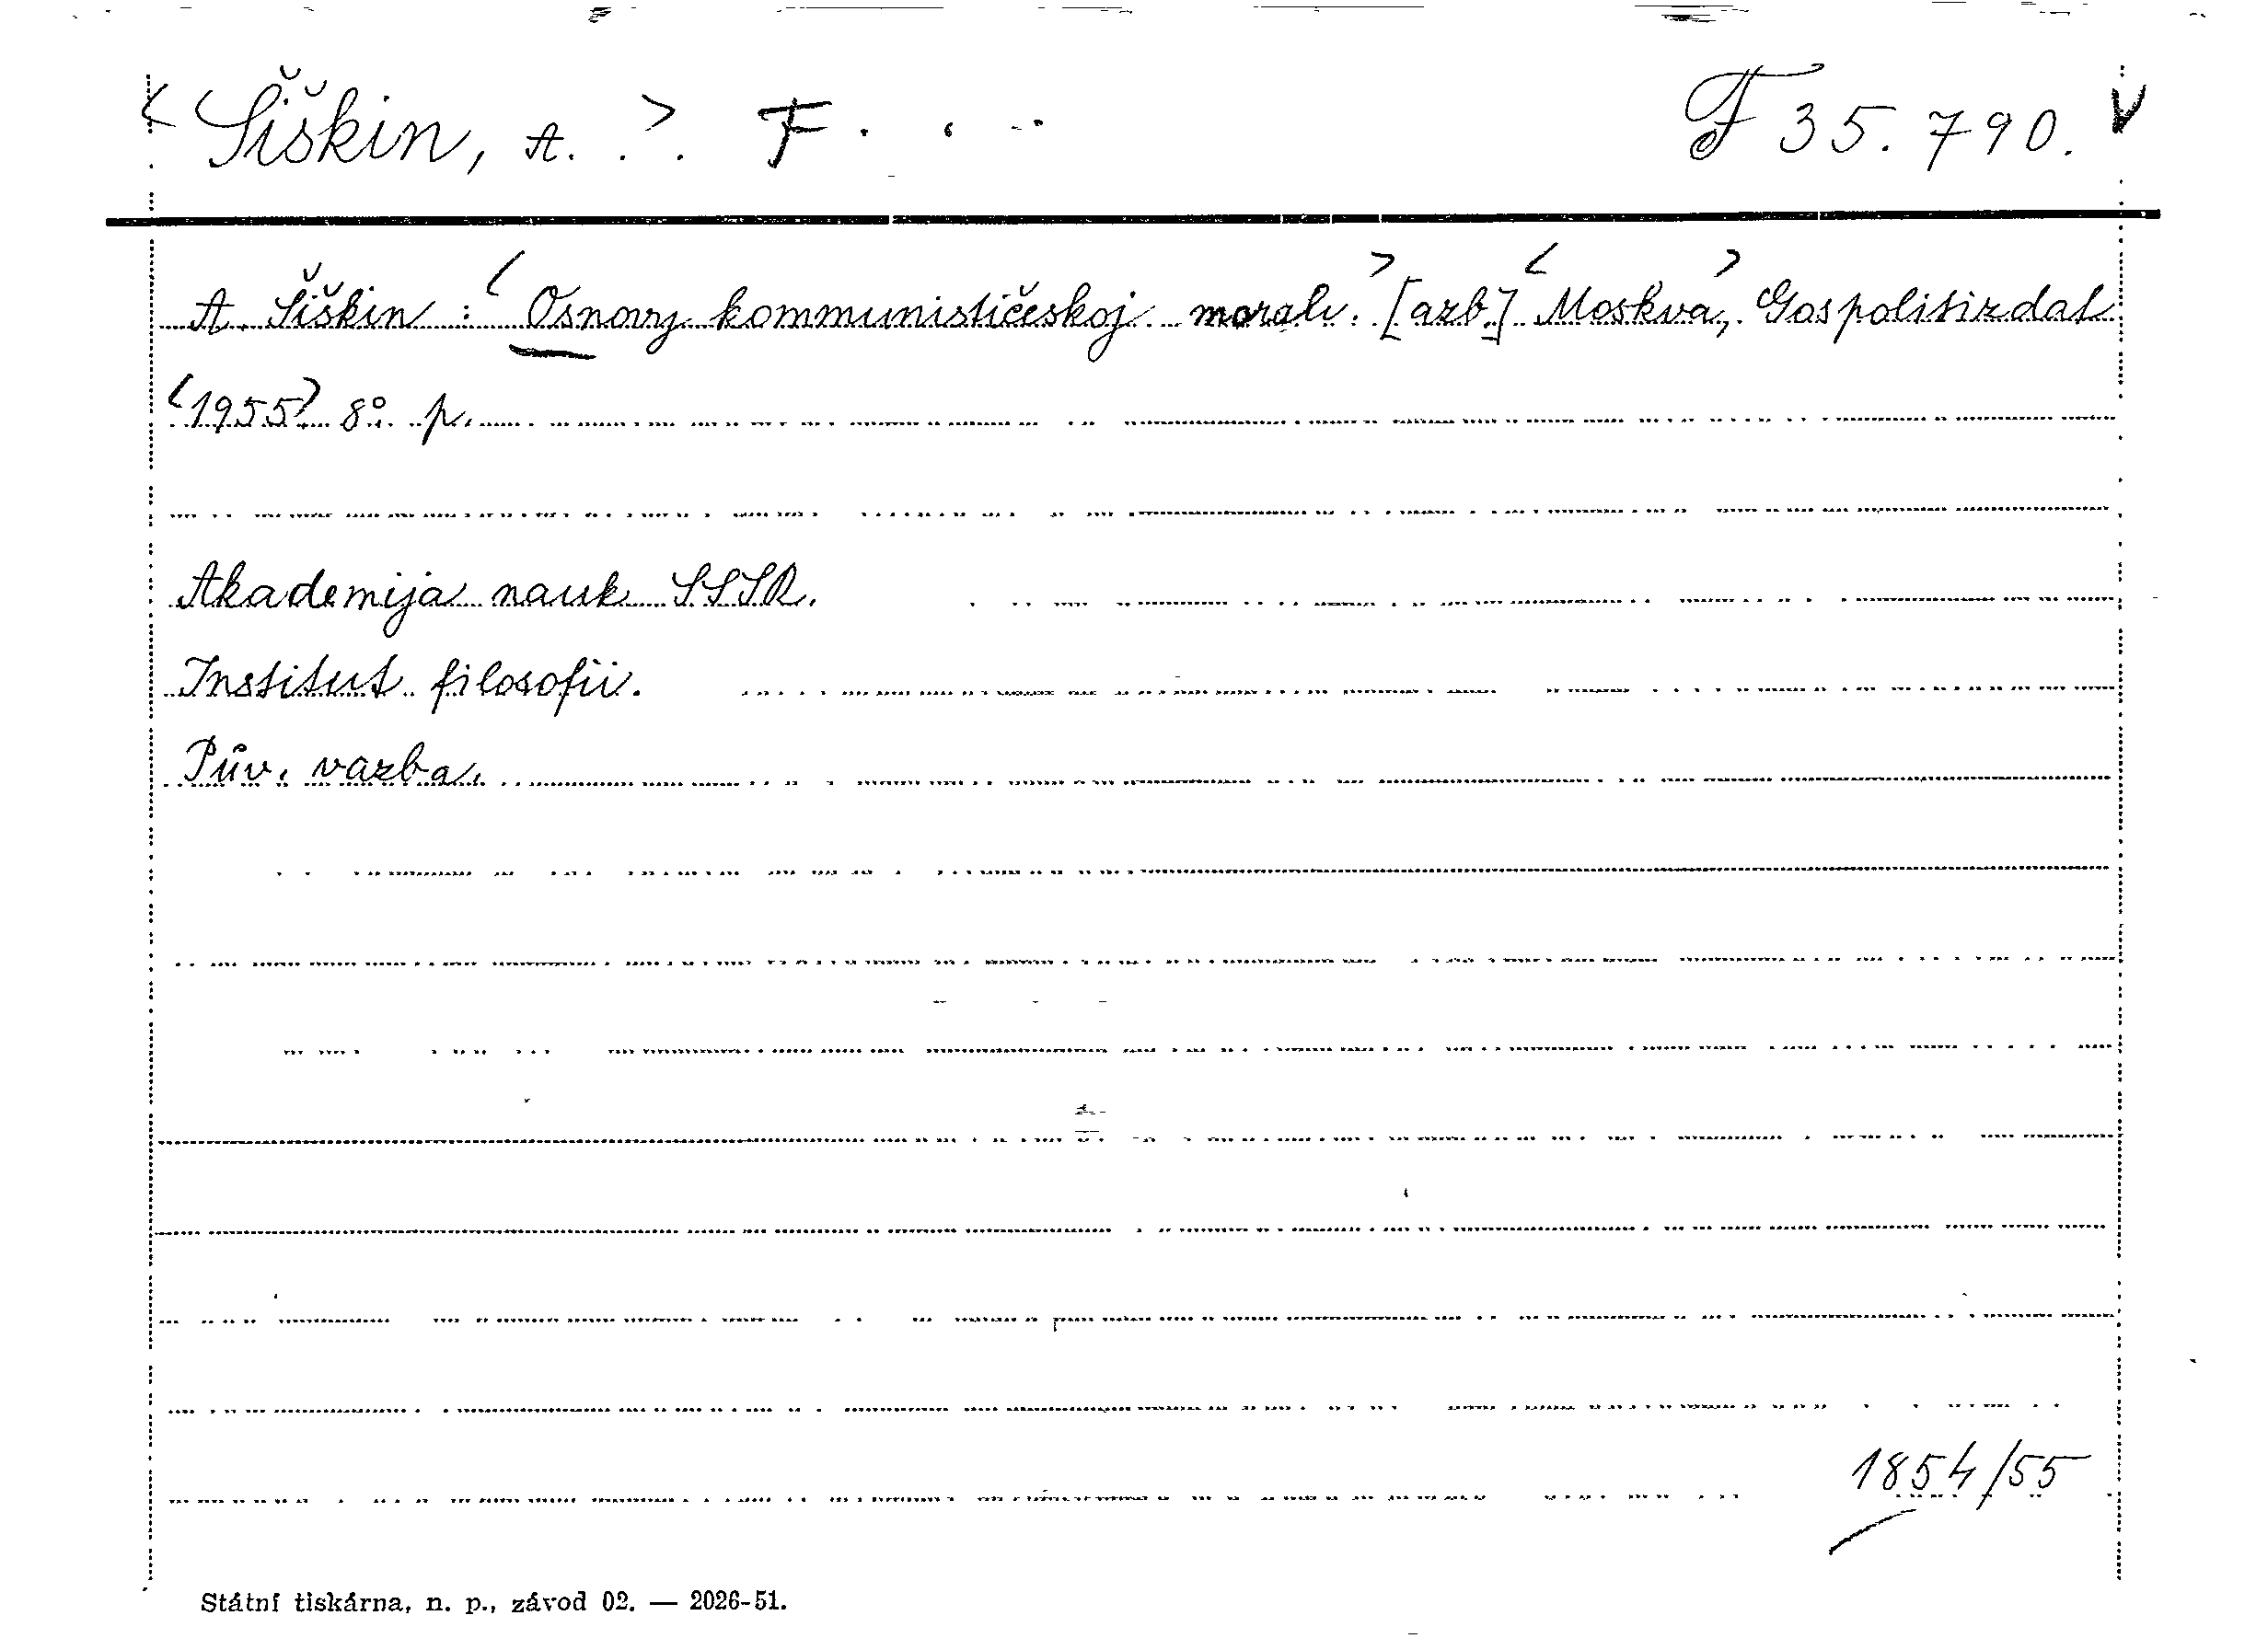 <Šiškin, A. . >. F. F 35.790. V
A. Šiškin : <Osnovy kommunističeskoj morali.> [azb.] <Moskva>, Gospolitizdat
<1955>. 8°. p.
Akademija nauk SSSR.
Institut filosofii.
Pův. vazba.
1854/55
Státní tiskárna, n. p., závod 02. — 2026-51.